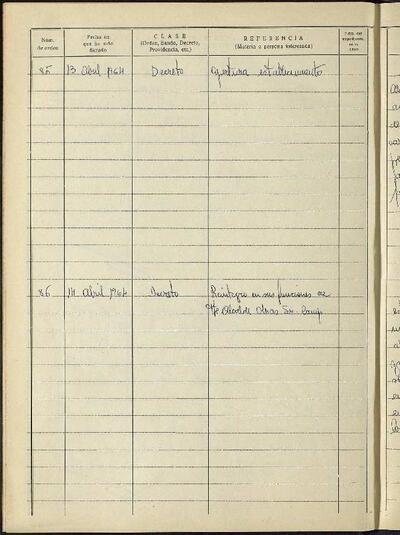 Núm. de orden
Fecha en que ha sido dictado
CLASE
(Orden, Bando, Decreto, Providencia, etc.)
REFERENCIA
(Materia o persona interesada)
85 13 Abril 1964 Decreto apertura establecimiento
86 14 Abril 1964 Decreto Reintegro en sus funciones de
Tte Alcalde Obras Sr. Camp